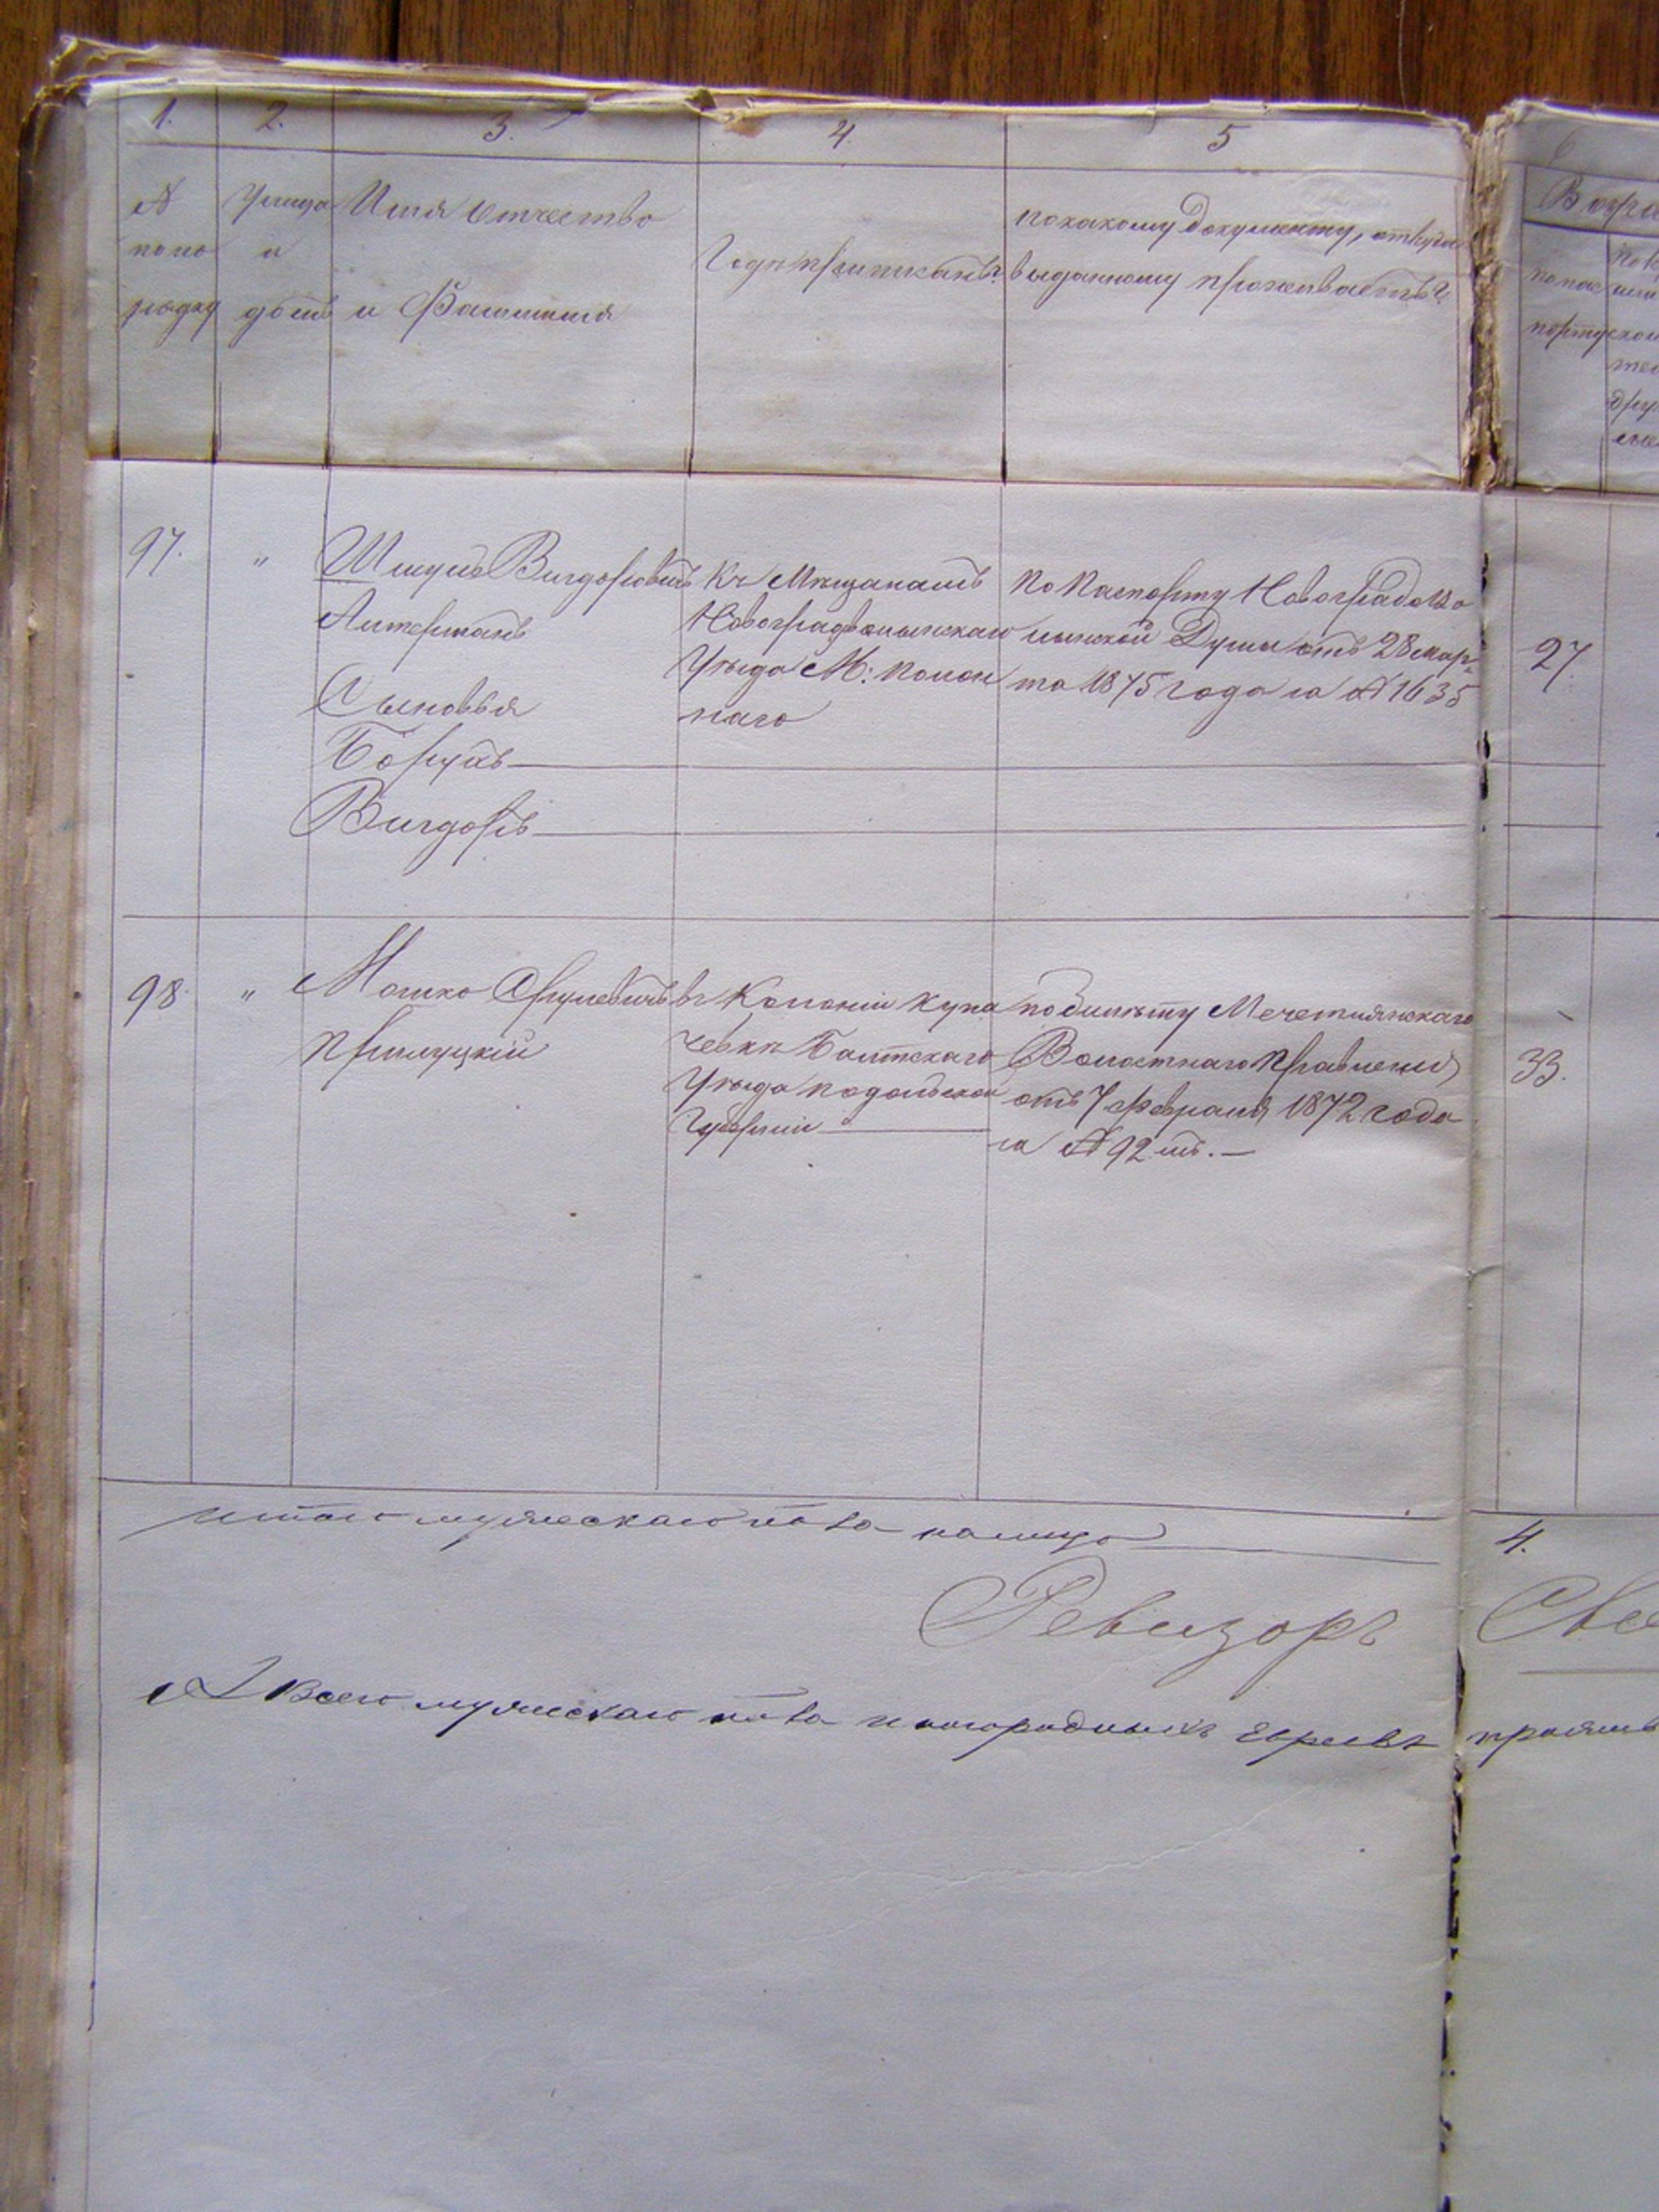 1. 2. 3. 4. 5
№ Улица Имя Отчество
по по и
рядку домъ и Фамилия
Годъ приписанъ?
по какому Документу, откуда
выданному проживаетъ?
97. " Шмуль Вигдоровичъ
Литерманъ
Сыновья
Борухъ
Вигдоръ
Къ Мѣщанамъ
Новоградволынскаго
Уѣзда М: Полон
наго
По Паспорту Новоградово
лынской Думы отъ 28 мар-
та 1875 года за № 1635
27.
98. " Мошко Срулевичъ
Прилуцкій
въ Колоніи Кула
чевкѣ Балтскаго
Уѣзда подольской
Губерніи
по билету Мечетнянскаго
Волостнаго Правленія
отъ 7 февраля 1872 года
за № 92 мъ. —
33.
Итого мужескаго пола налицо
4.
Ревизоръ
А Всего мужескаго пола иногородныхъ Евреевъ